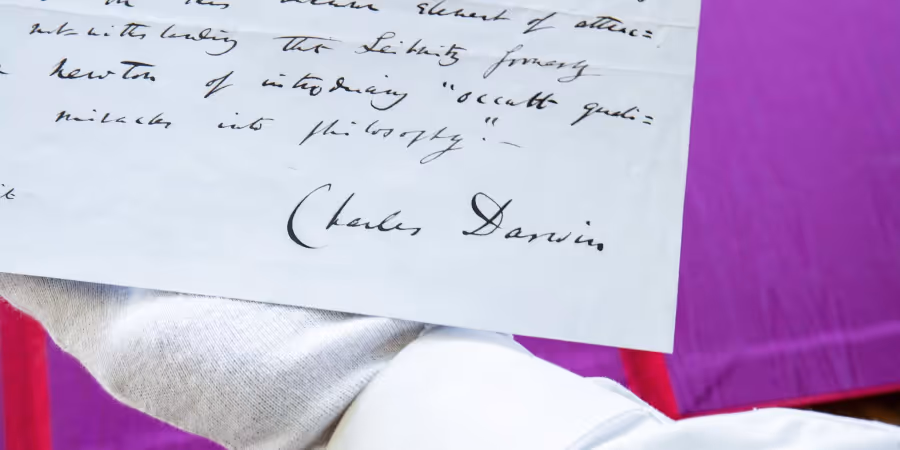 in this unknown element of attrac=
not-withstanding that Leibnitz formerly
Newton of introducing "occult quali=
miracles into philosophy."—
it
Charles Darwin